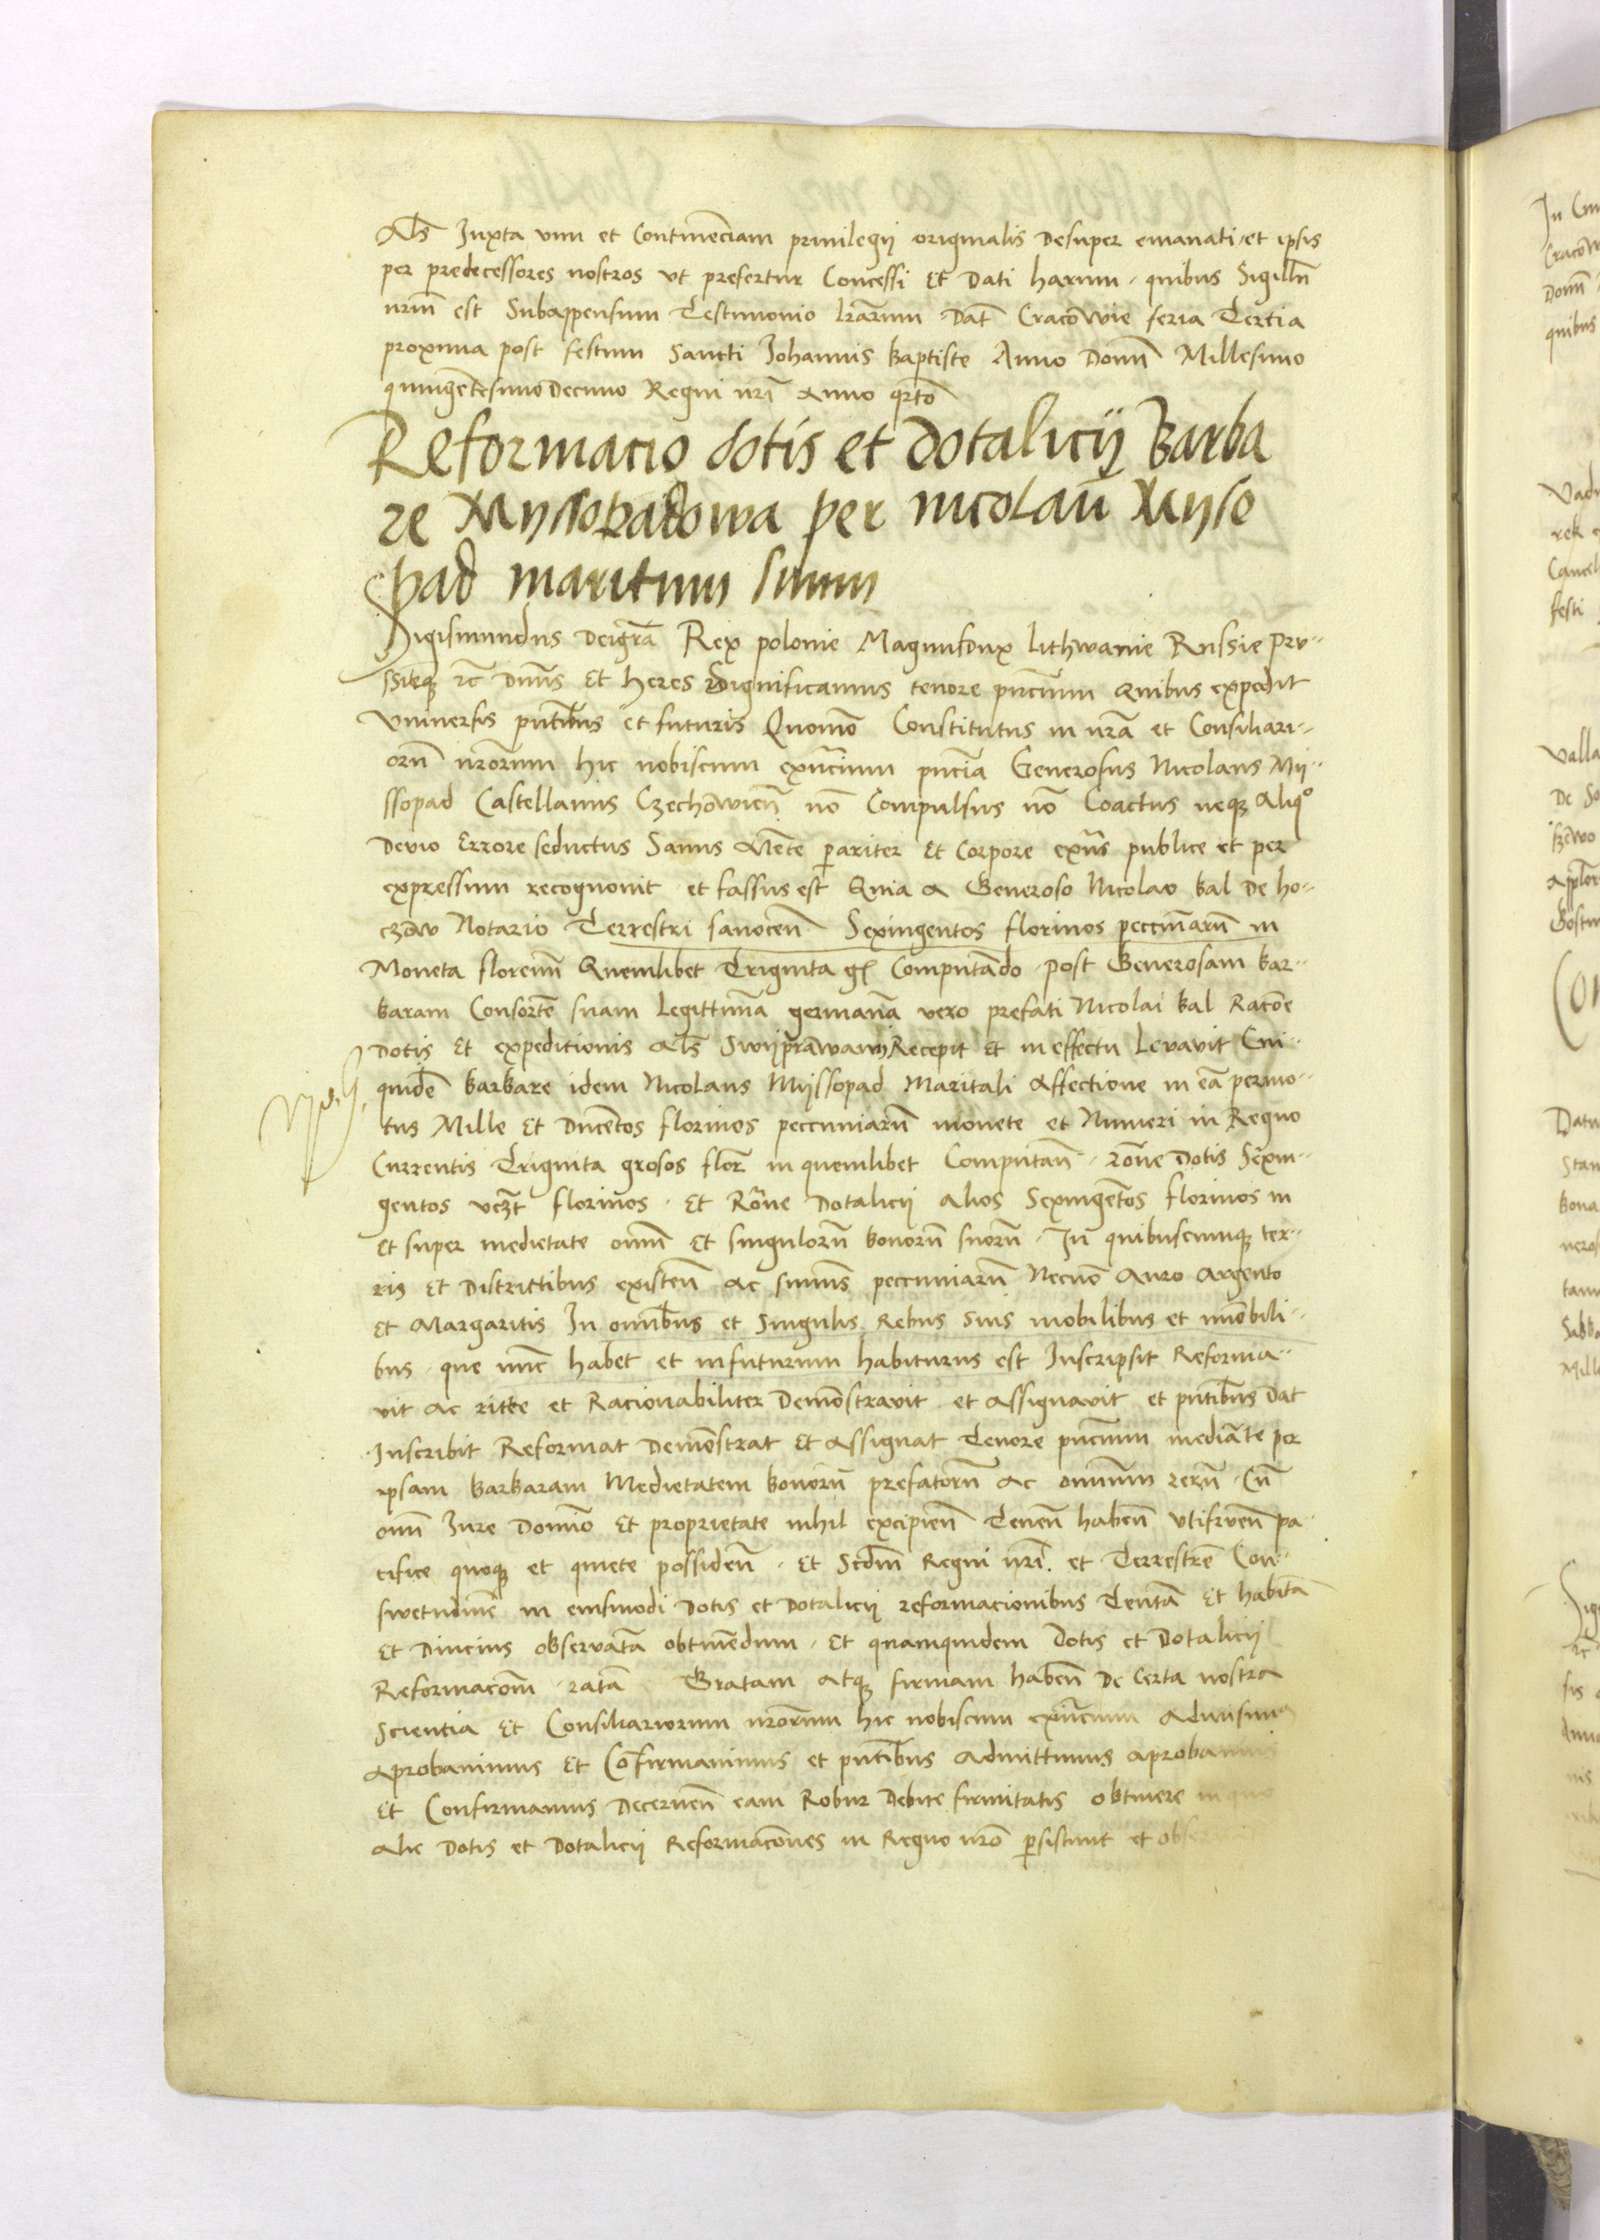 Als Iuxta vim et Continenciam privilegii originalis Desuper emanati et ipsis
per predecessores nostros vt prefertur Concessi Et Dati harum quibus Sigillū
nrm̄ est Subappensum Testimonio lrārum Datꝭ Cracowie feria Tercia
proxima post festum Sancti Johannis Baptiste Anno Domī Millesimo
quingētesimo Decimo Regni nrī Anno qrto
Reformacio dotis et dotalicij Barba
re Myssopadowa per nicolaū Myso
pad maritum suum
Sigismundus Deigrā Rex polonie Magnusdux Lithwanie Russie Prv-
ssieq; zc Dn̄us Et heres Significamus tenore pn̄cium Quibus expedit
Vniuersis pn̄tibus et futuris Quomō Constitutus in nrā et Consiliari-
orū nrōrum hic nobiscum exn̄cium pn̄cia Generosus Nicolaus Mij-
ssopad Castellanus Czechowien̄ nō Compulsus nō Coactus neq; Aliqo
Devio Errore seductus Sanus Mēte pariter Et Corpore exn̄s publice et per
expressum recognovit et fassus est Quia A Generoso Nicolao Bal De ho-
czow Notario Terrestri sanocen̄ Sexingentos florinos peccuniarū in
Moneta florenū Quemlibet Triginta gr Computādo post Generosam Bar-
baram Consortē suam Legittimā germanā vero prefati Nicolai Bal Racōe
Dotis Et expeditionis Als Swijprawanij Recepit Et in effectu Levavit Cui
quidē Barbare idem Nicolaus Mijssopad Maritali Affectione in eā permo-
tus Mille Et Ducētos florinos peccuniarū monete et Numeri in Regno
Currentis Triginta grosos flor in quemlibet Computan̄ rōne Dotis Sexin-
gentos vczt florinos Et Rōne Dotalicij Alios Sexingētos florinos in
Et super medietate omī Et singulorū bonorū suorū In quibuscumq; ter-
ris Et Districtibus existen̄ Ac sum̄s peccuniarū Necnō Auro Argento
Et Margaritis In omībus et Singulis Rebus suis mobilibus et imōbili-
bus que nūc habet et infuturum habiturus est Inscripsit Reforma-
vit Ac ritte et Racionabiliter Demōstravit et Assignavit et pn̄tibus Dat
Inscribit Reformat Demōstrat Et Assignat Tenore pn̄cium mediāte per
ipsam Barbaram Medietatem bonorū prefatorū Ac omnium rerū Cū
omī Iure Domīo Et proprietate nihil excipien̄ Tenen̄ haben̄ vtifruen̄ pa-
cifice quoq; et quiete possiden̄ Et Scdm̄ Regni nrī et Terrestrē Con-
swetudinē in eiusmodi Dotis et Dotalicij reformacionibus Tentā Et habitā
Et Diucius observatā obtinēdum Et quamquidem Dotis et Dotalicij
Reformacōm̄ ratā Gratam Atq; firmam haben̄ De Certa nostra
Scientia Et Consiliariorum nrōrum hic nobiscum exn̄cium Admisimus
Aprobavimus Et Cōfirmavimus et pn̄tibus Admittimus aprobamus
Et Confirmamus Decernen̄ eam Robur Debite firmitatis obtinere in quo
Alie Dotis et Dotalicij Reformacōnes in Regno nrō persistunt et